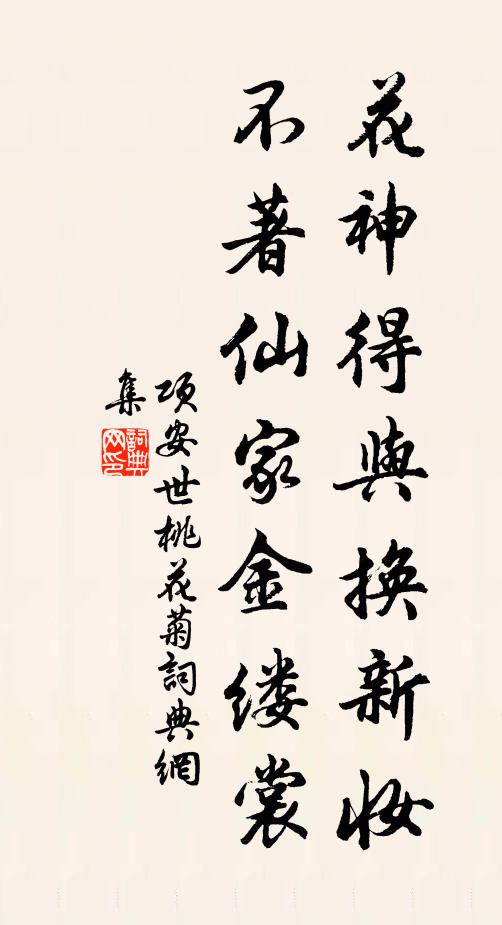 花神得與換新妝
不著仙家金缕裳
項安世桃花菊詞典網
集
詞典網印